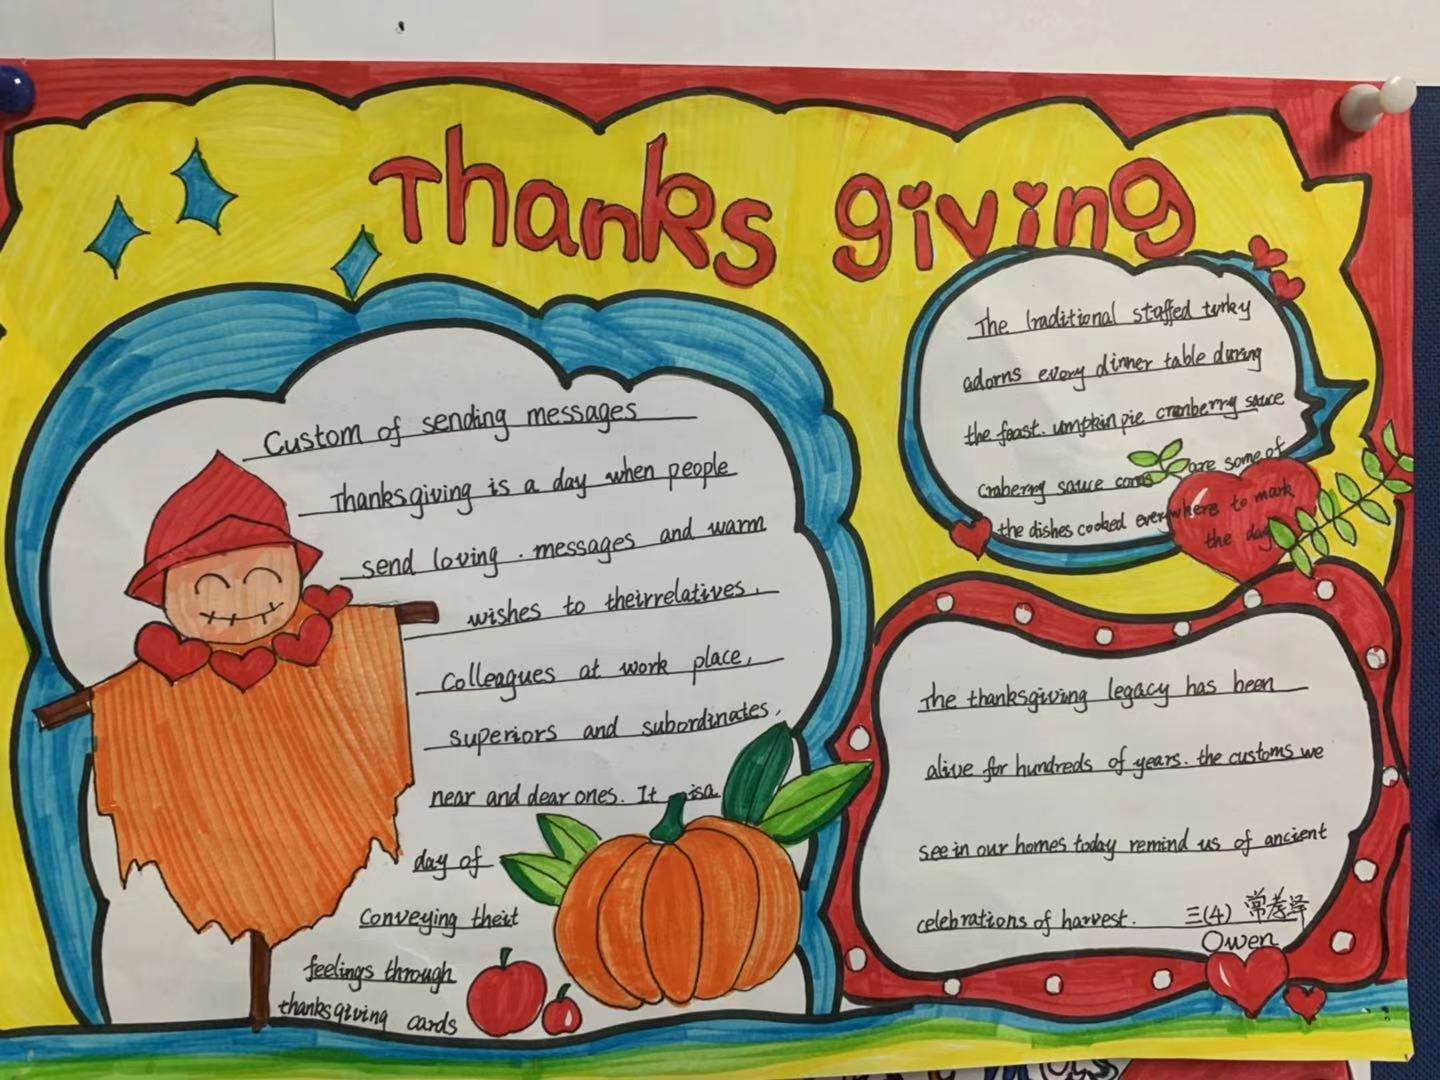 Thanks giving
Custom of sending messages
Thanksgiving is a day when people
send loving . messages and warm
wishes to theirrelatives,
colleagues at work place,
superiors and subordinates,
near and dear ones. It isa
day of
conveying theit
feelings through
thanksgiving cards
The traditional staffed turky
adorns every dinner table during
the feast. umpkin pie cranberry sauce
craberry sauce corns are some of
the dishes cooked everywhere to mark
the day
The thanksgiving legacy has been
alive for hundreds of years. the customs we
see in our homes today remind us of ancient
celebrations of harvest. 三(4) 常孝泽
Owen